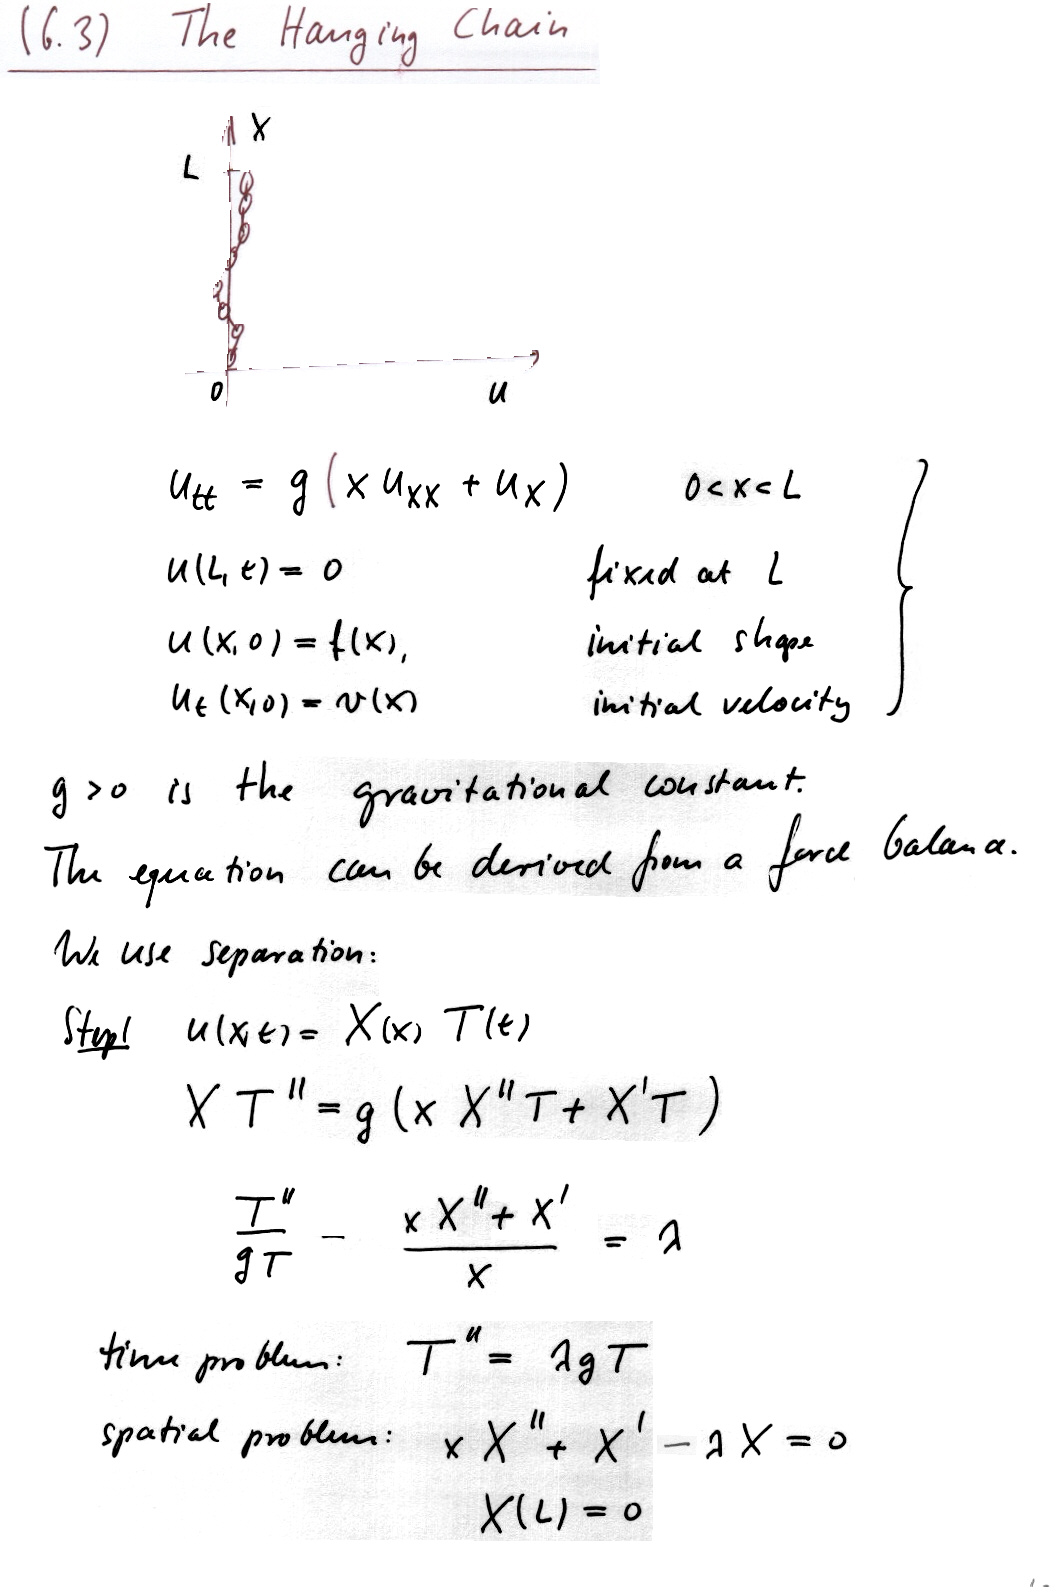 (6.3) The Hanging Chain
X
L
0
u
u_tt = g (x u_xx + u_x) 0<x<L
u(L,t) = 0 fixed at L
u(x,0) = f(x), initial shape
u_t(x,0) = v(x) initial velocity
g>0 is the gravitational constant.
The equation can be derived from a force balance.
We use separation:
Step1 u(x,t) = X(x) T(t)
X T'' = g (x X'' T + X' T)
T''/gT - (x X'' + X')/X = λ
time problem: T'' = λ g T
spatial problem: x X'' + X' - λ X = 0
X(L) = 0